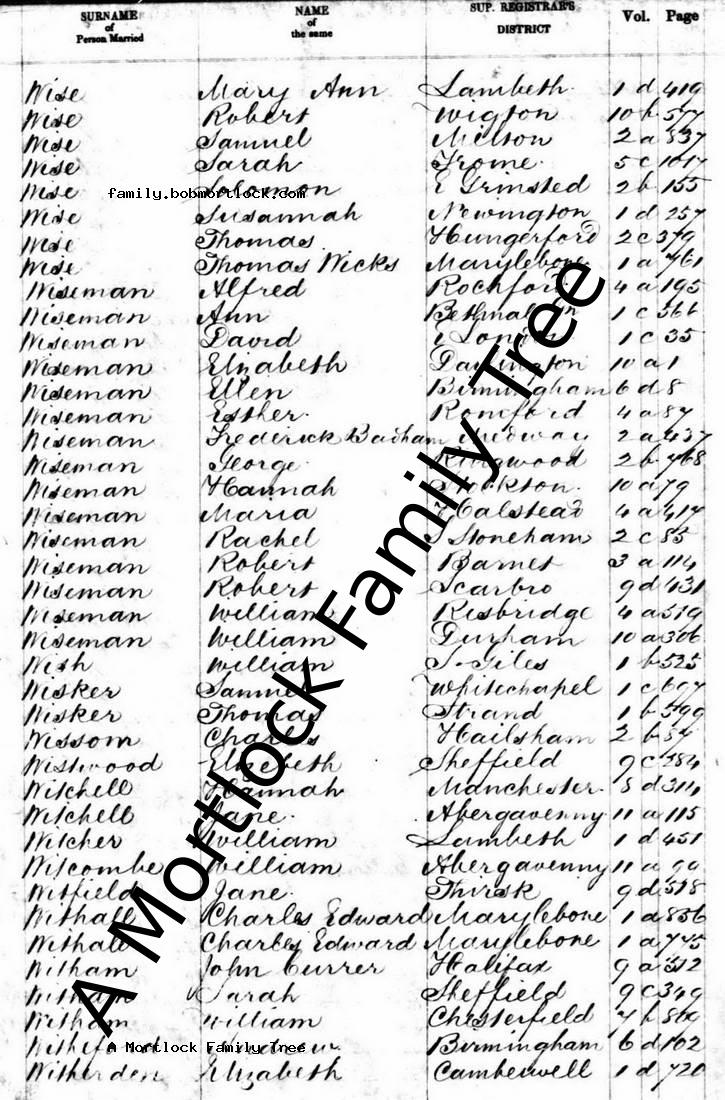 SURNAME of Person Married NAME of the same SUP. REGISTRAR'S DISTRICT Vol. Page
Wise Mary Ann Lambeth 1 d 419
Wise Robert Wigton 10 b 577
Wise Samuel Melton 2 a 537
Wise Sarah Frome 5 c
family.bobmortlock.com
Wise Solomon E Grinsted 2 b 155
Wise Susannah Newington 1 d 257
Wise Thomas Hungerford 2 c 379
Wise Thomas Wicks Marylebone 1 a 761
Wiseman Alfred Rochford 4 a 195
Wiseman Ann Bethnal Gn 1 c 566
Wiseman David E London 1 c 35
Wiseman Elizabeth Darlington 10 a 1
Wiseman Ellen Birmingham 6 d 8
Wiseman Esther Romford 4 a 87
Wiseman Frederick Medway 2 a 437
Wiseman George Ringwood 2 b 768
Wiseman Hannah Stockton 10 a 79
Wiseman Maria Halstead 4 a 414
Wiseman Rachel S Stoneham 2 c 85
Wiseman Robert Barnet 3 a 114
Wiseman Robert Scarbro 9 d 431
Wiseman William Risbridge 4 a 519
Wiseman William Durham 10 a 306
Wish William S. Giles 1 b 525
Wisker Samuel Whitechapel 1 c 607
Wisker Thomas Strand 1 b 599
Wissom Charles Hailsham 2 b 54
Wistwood Elizebeth Sheffield 9 c 284
Witchell Hannah Manchester 8 d 314
Witchell Jane Abergavenny 11 a 115
Witcher William Lambeth 1 d 451
Witcombe William Abergavenny 11 a 99
Witfield Jane Thirsk 9 d 518
Withall Charles Edward Marylebone 1 a 836
Withall Charles Edward Marylebone 1 a 745
Witham John Currer Halifax 9 a 512
Witham Sarah Sheffield 9 c 349
Witham William Chesterfield 7 b 809
Birmingham 6 d 102
A Mortlock Family Tree
Witherden Elizabeth Camberwell 1 d 720
A Mortlock Family Tree